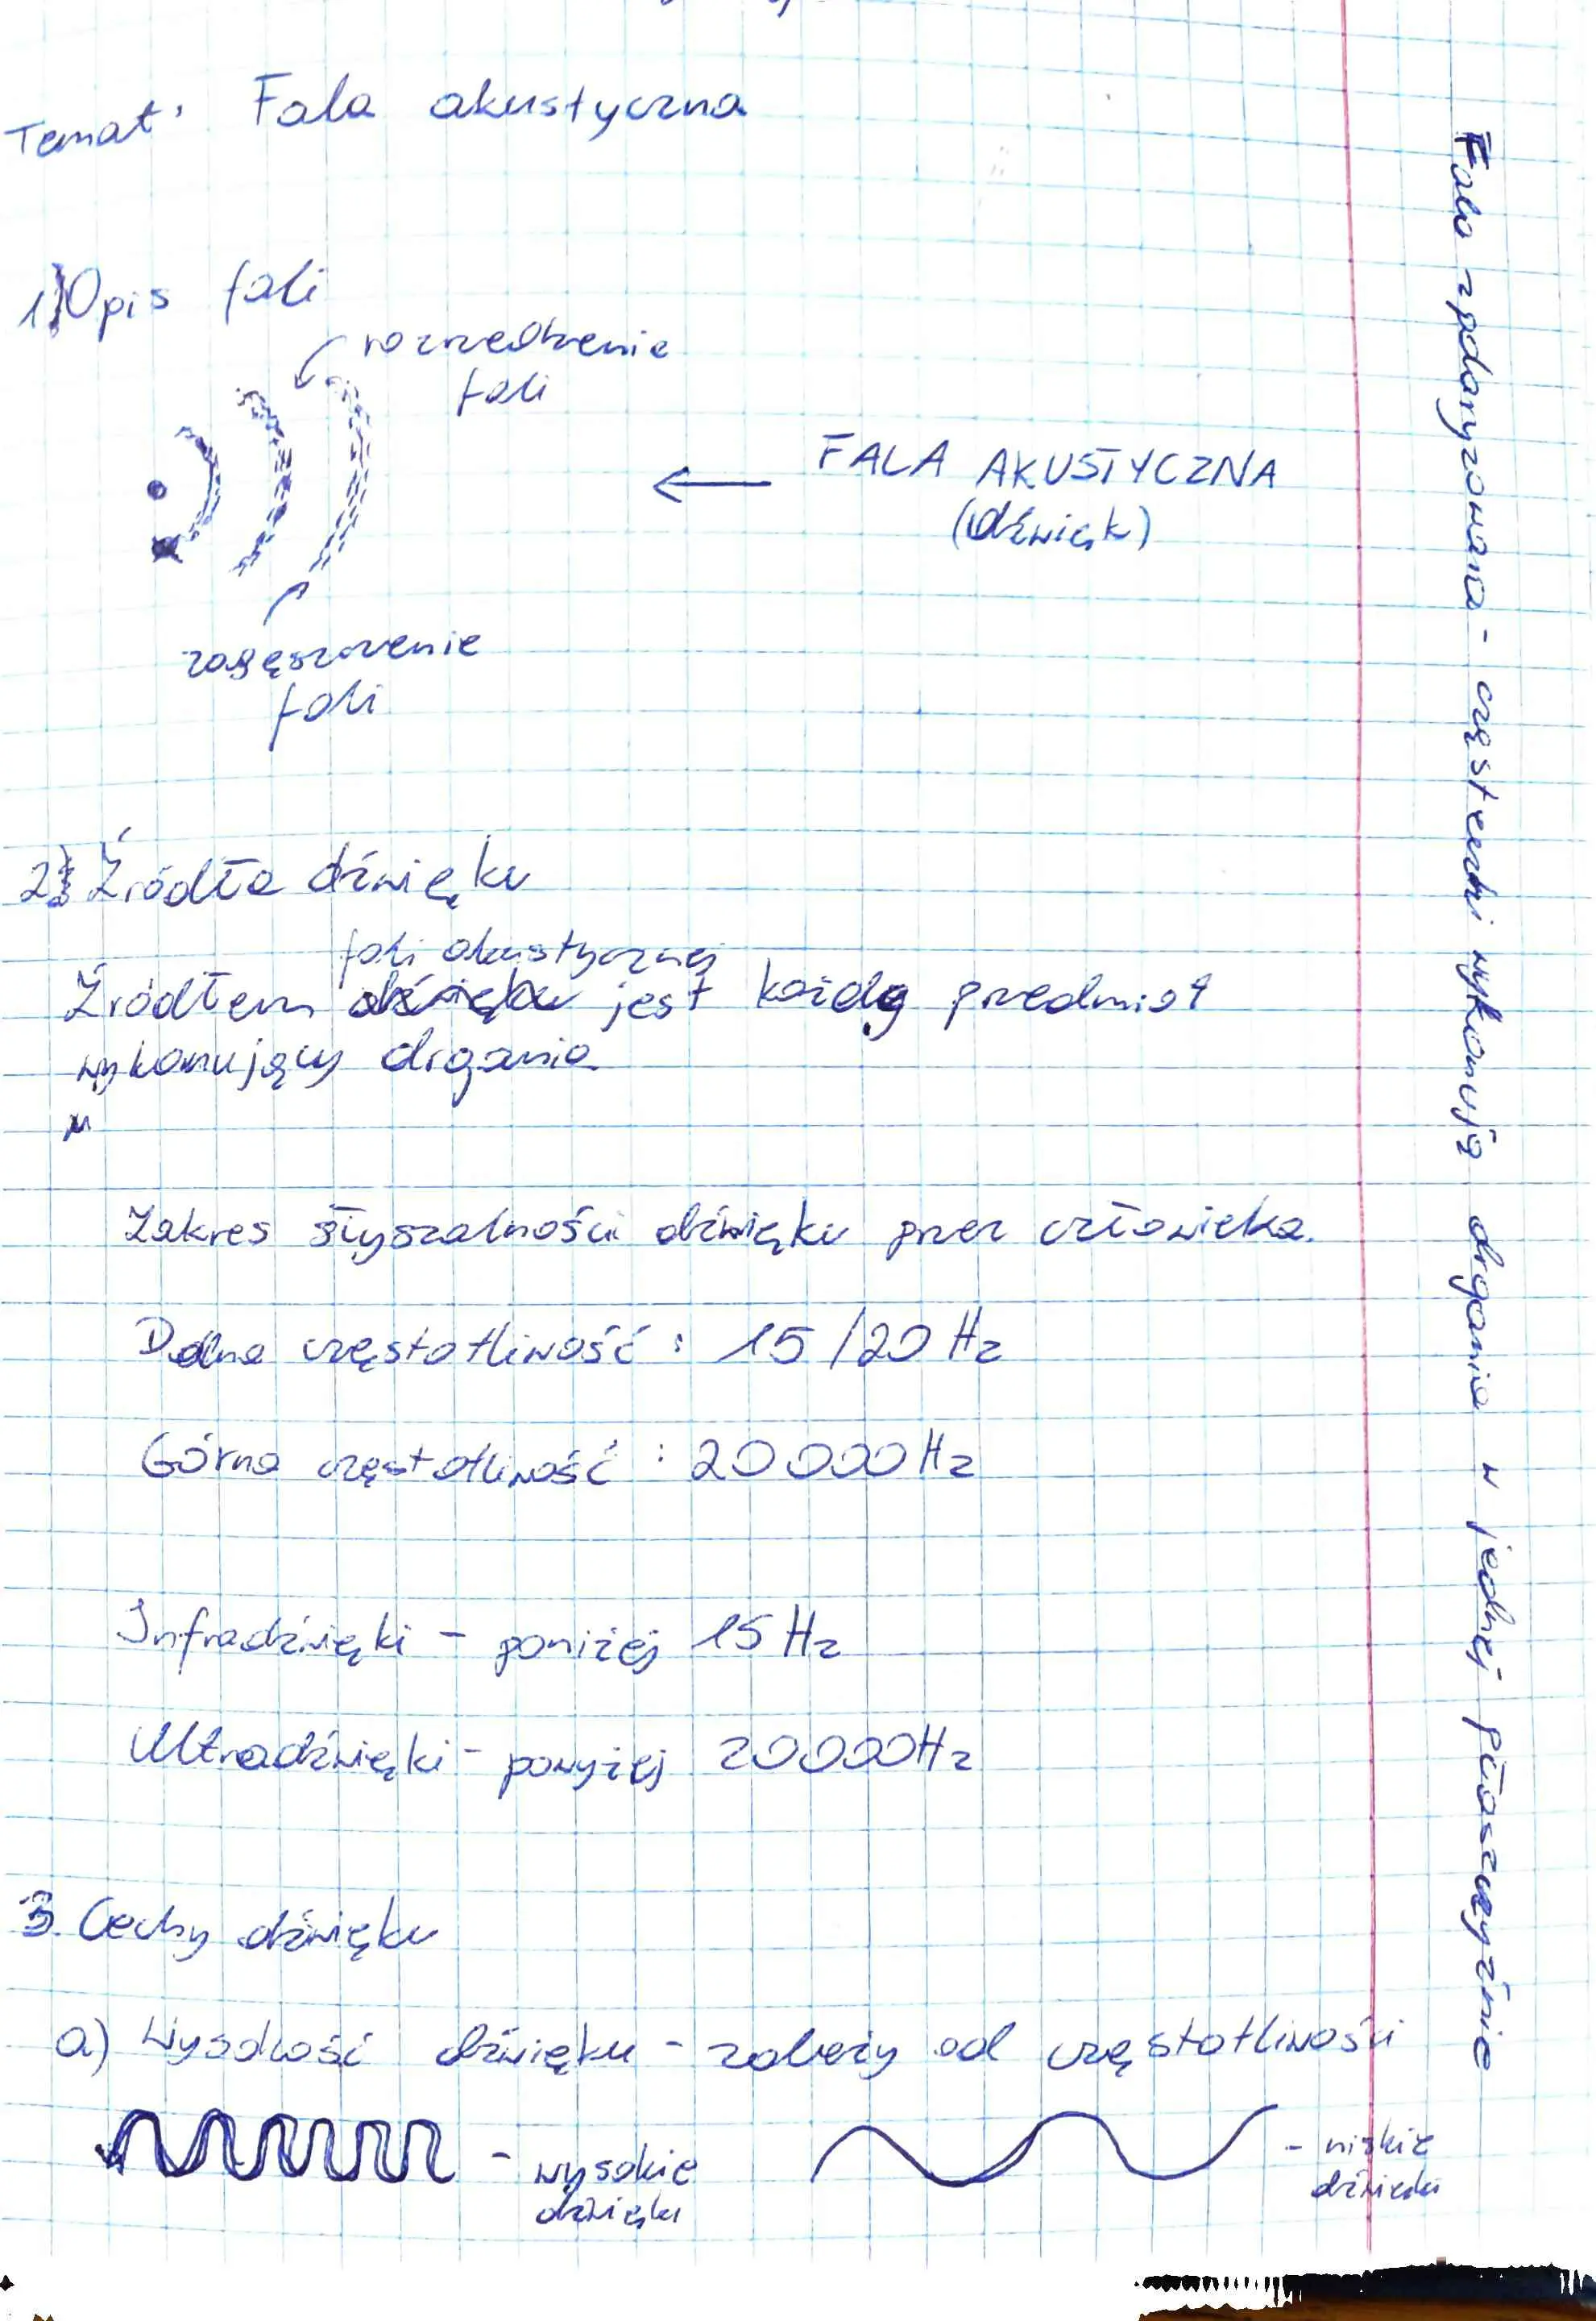 Temat: Fala akustyczna
1) Opis fali
rozrzedzenie
fali
FALA AKUSTYCZNA
(dźwięk)
zagęszczenie
fali
2) Źródła dźwięku
fali akustycznej
Źródłem dźwięku jest każdy przedmiot
wykonujący drgania
Zakres słyszalności dźwięku przez człowieka.
Dolna częstotliwość: 15/20 Hz
Górna częstotliwość: 20000Hz
Infradźwięki - poniżej 15 Hz
Ultradźwięki - powyżej 20000Hz
3. Cechy dźwięku
a) Wysokość dźwięku - zależy od częstotliwości
- wysokie
dźwięki
- niskie
dźwięki
Fala spolaryzowana - cząsteczki wykonują drgania w jednej płaszczyźnie